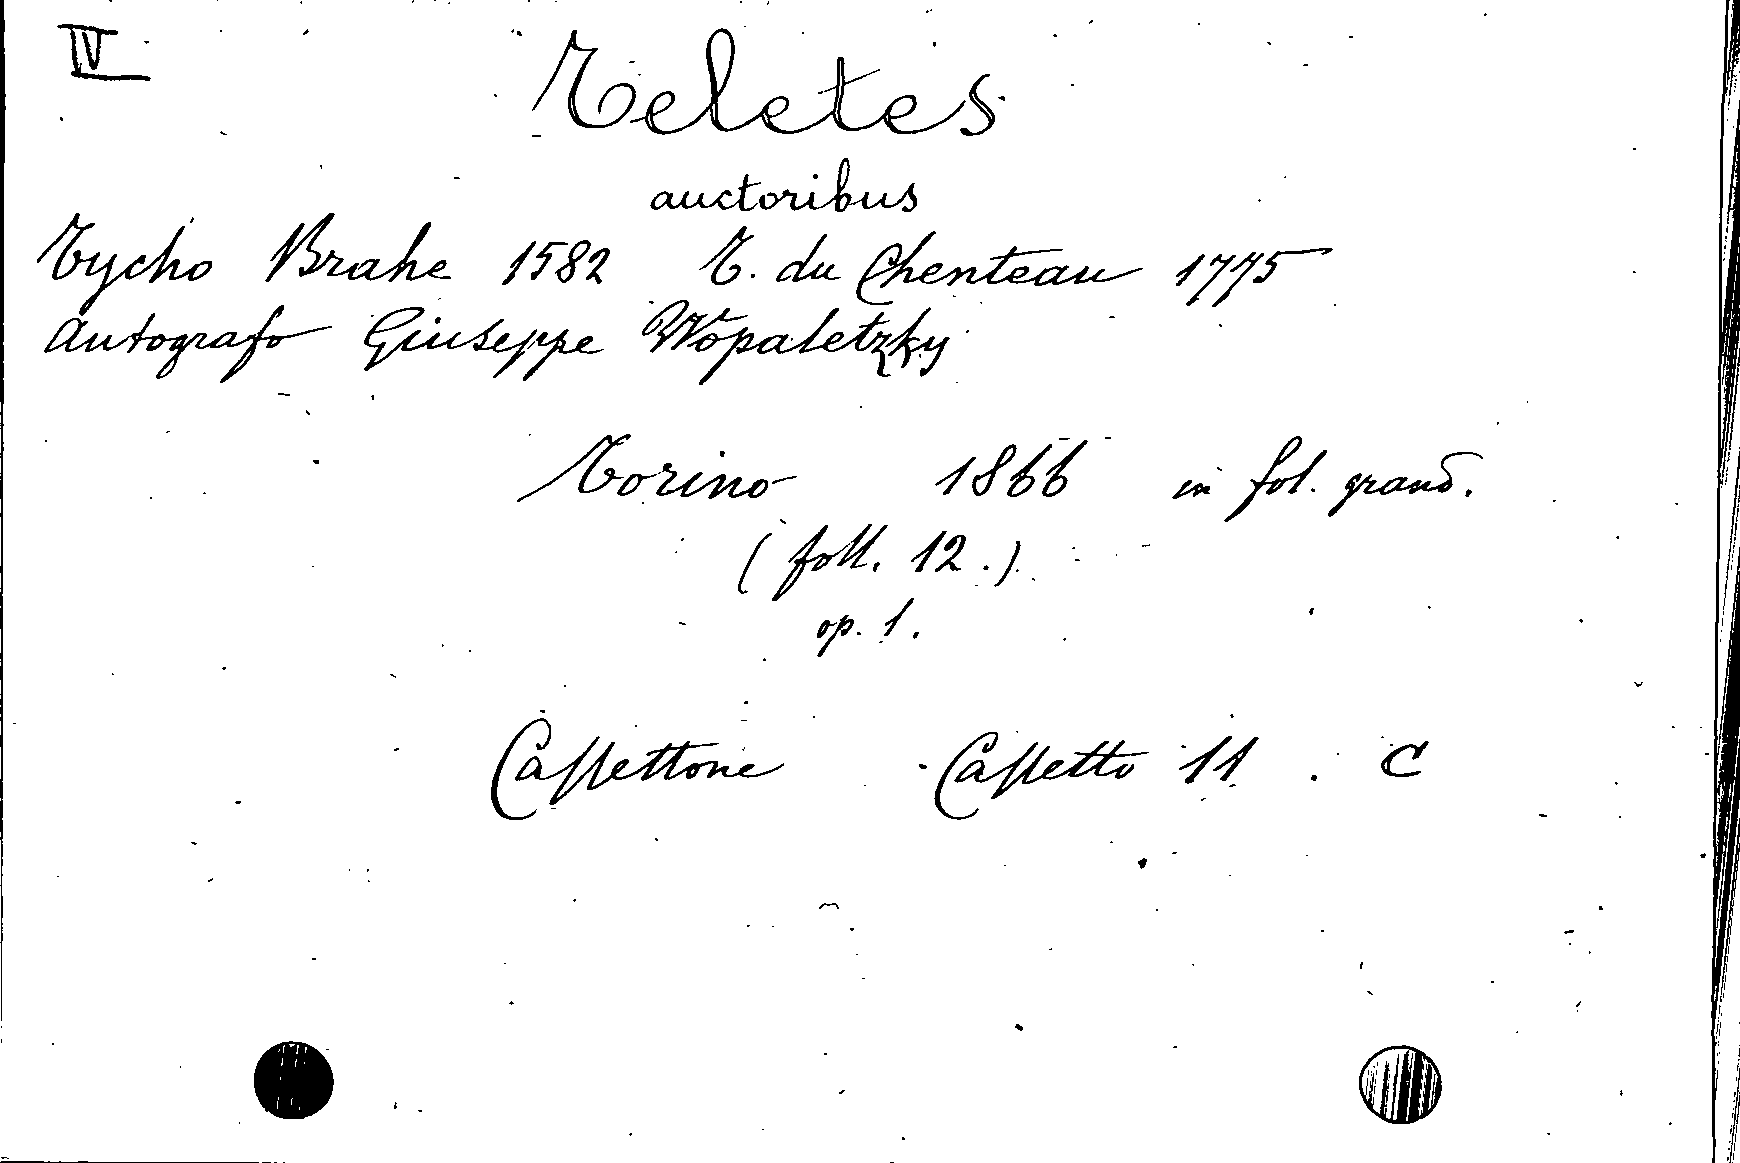 IV
Teletes
auctoribus
Tycho Brahe 1582 T. du Chenteau 1775
Autografo Giuseppe Wopaletzky
Torino 1866 in fol. grand.
( foll. 12 . )
op. 1 .
Cassettone Cassetto 11 . C